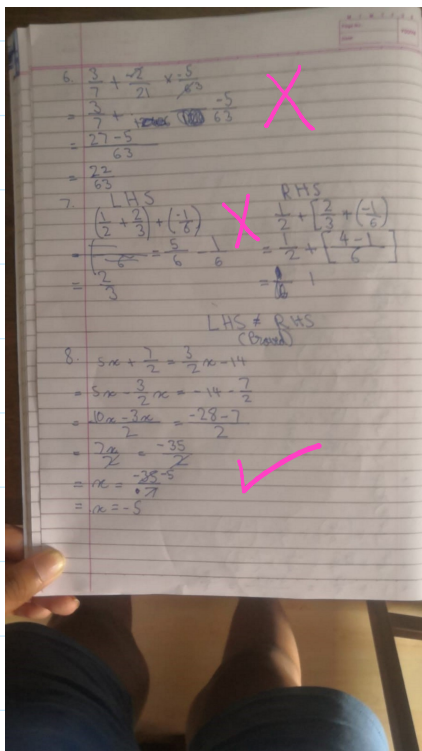 6. 3/7 + -2/21 × -5/63
= 3/7 + -5/63
= 27-5/63
= 22/63
7. LHS RHS
(1/2 + 2/3) + (-1/6) 1/2 + [2/3 + (-1/6)
= 5/6 - 1/6 = 1/2 + [4-1/6]
= 2/3 = 1
LHS ≠ RHS
8. 5x + 7/2 = 3/2 x - 14
= 5x - 3/2 x = -14 - 7/2
= 10x-3x/2 = -28-7/2
= 7x/2 = -35/2
= x = -35/7 -5
= x = -5